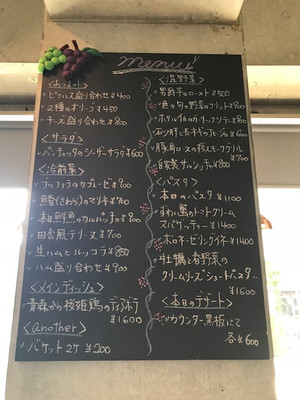 menu
<おつまみ>
・ピクルス盛り合わせ ¥400
・2種のオリーブ ¥450
・チーズ盛り合わせ ¥800
<サラダ>
・パンチェッタのシーザーサラダ ¥600
<冷前菜>
・ブッファラのカプレーゼ ¥900
・鰆(さわら)のマリネ ¥700
・本日鮮魚のカルパッチョ ¥800
・田舎風テリーヌ ¥700
・生ハムとルッコラ ¥850
・ハム盛り合わせ ¥900
<メインディッシュ>
・青森から桜姫鶏のディアボラ
¥1600
<another>
・バケット2ケ ¥200
<温野菜>
・男爵芋のロースト ¥500
・色々旬の野菜のフリット ¥800
・ホタルイカのガーリックソテー ¥800
¥600
¥700
・自家製サルシッチャ ¥800
<パスタ>
・本日のパスタ ¥1100
・ずわい蟹のトマトクリーム
スパゲティー ¥1400
・ホロホロ ¥1400
・牡蠣と春野菜の
クリームソースショートパスタ
¥1600
<本日のデザート>
・カウンター黒板にて
各 ¥600